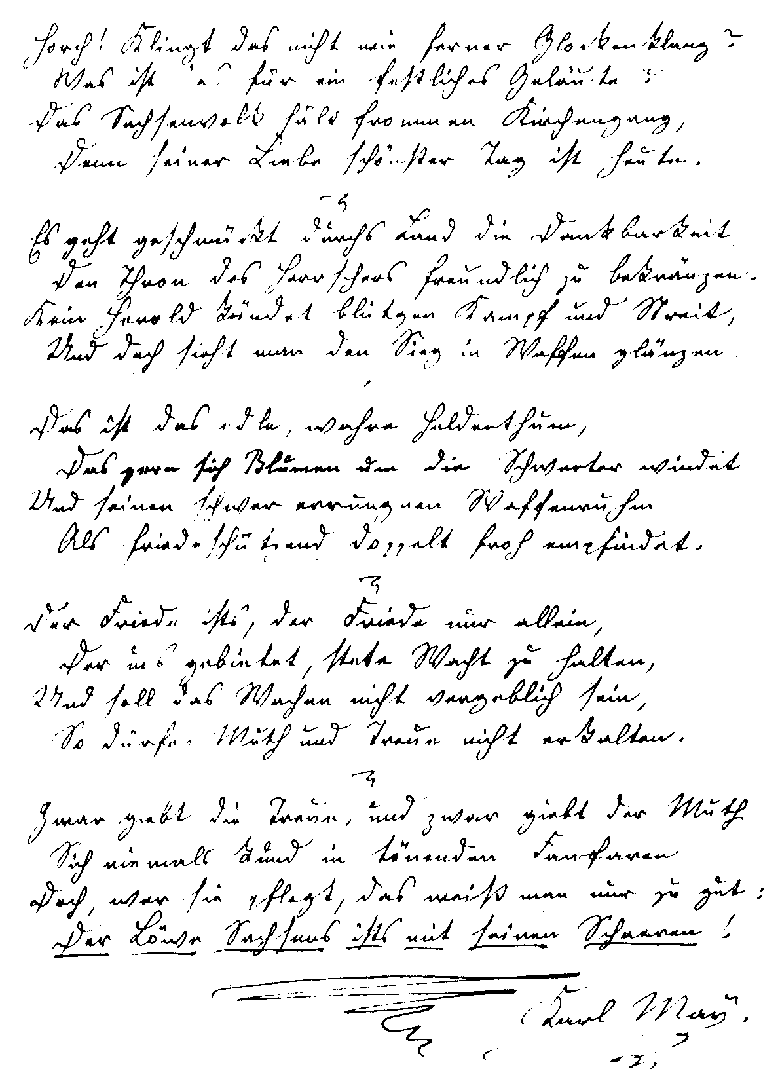 Horch! Klingt das nicht wie ferner Glockenklang?
Was ist es für ein festliches Geläute?
Das Sachsenvolk hält frommen Kirchengang,
Denn seiner Liebe schönster Tag ist heute.
Es geht geschmückt durchs Land die Dankbarkeit
Den Thron des Herrschers freundlich zu bekränzen.
Kein Herold kündet blutgen Kampf und Streit,
Und doch sieht man den Sieg in Waffen glänzen.
Das ist das edle, wahre Heldenthum,
Das gern sich Blumen um die Schwerter windet
Und seinen schwer errungnen Waffenruhm
Als friedeschützend doppelt froh empfindet.
Der Friede ists, der Friede nur allein,
Der uns gebietet, stete Wacht zu halten,
Und soll das Wachen nicht vergeblich sein,
So dürfen Muth und Treue nicht erkalten.
Zwar giebt die Treue, und zwar giebt der Muth
Sich niemals kund in tönenden Fanfaren
Doch, wer sie pflegt, das weiß man nur zu gut:
Der Löwe Sachsens ists mit seinen Schaaren!
Karl May.